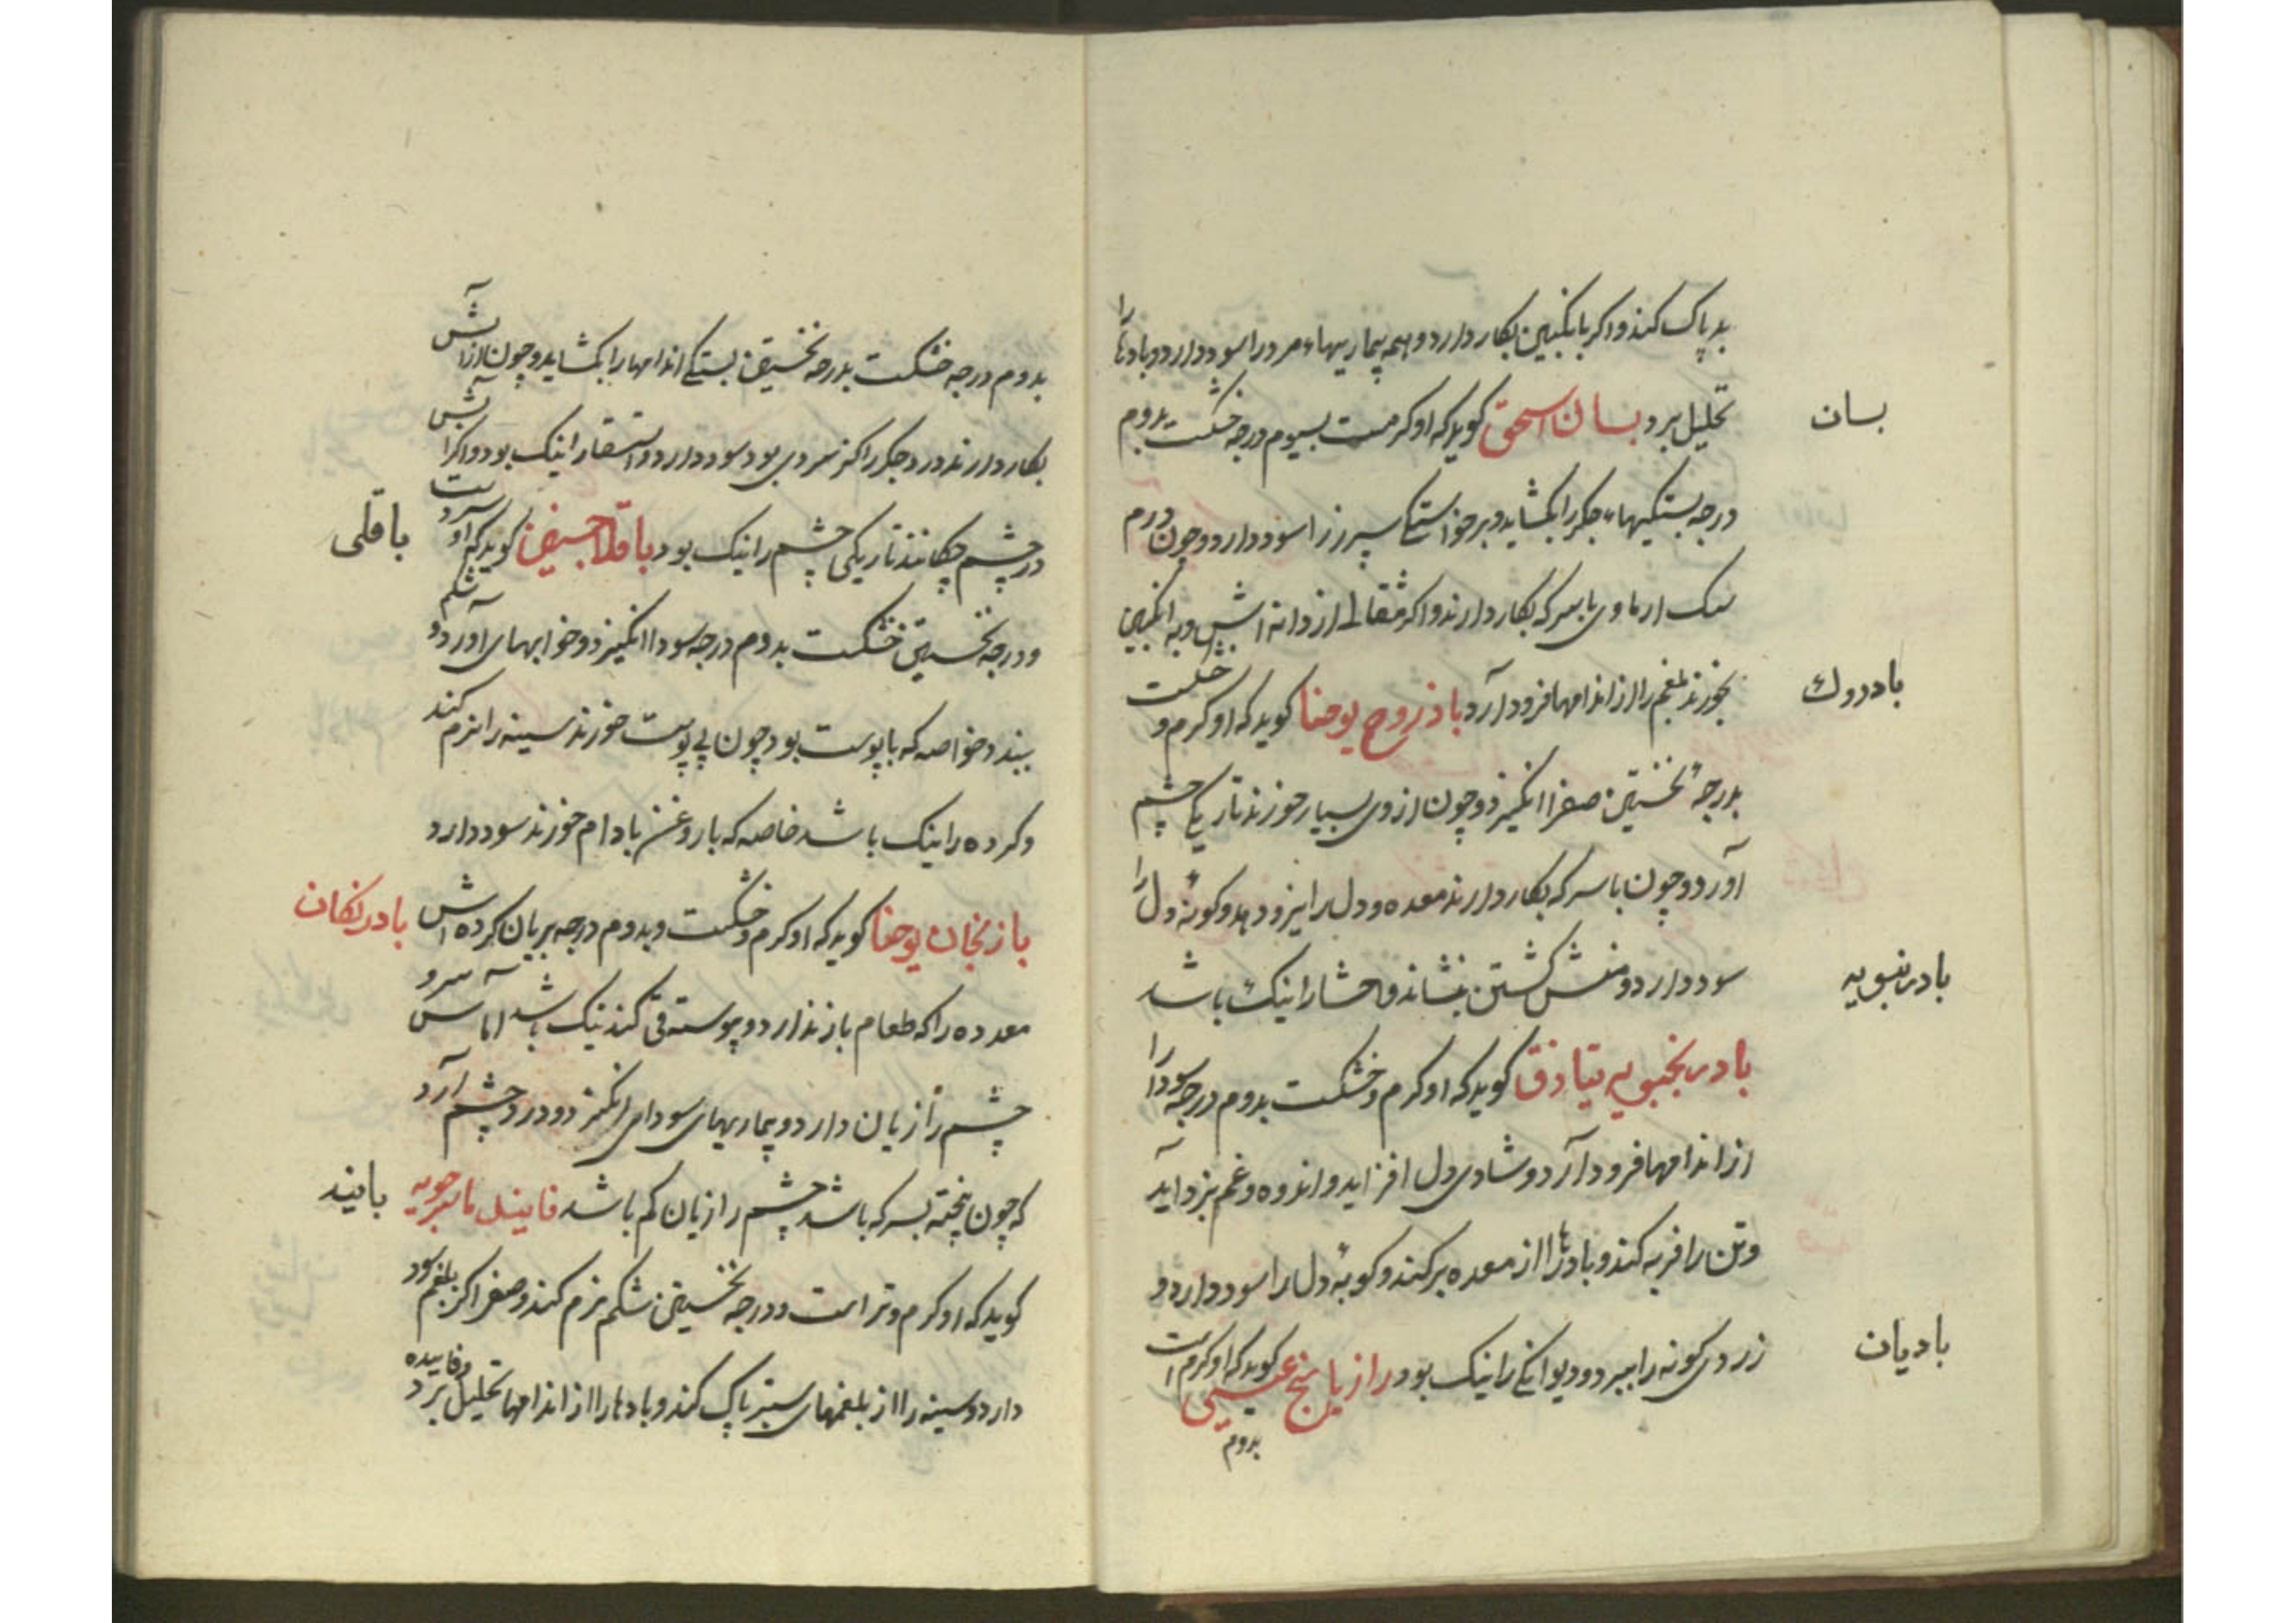 بد پاک کند و اکر بانکبین بکار دارد و همه بیماریهاء سرد را سود دارد و بادها را
تحلیل برد بسان اسحق کوید که او کرمست بسیوم درجه خشکست بدوم
بسان
درجه بستکیهاء جکر را بکشاید و برخواستکی سپرز را سود دارد و چون درم
سنک از ماوی با سرکه بکار دارند و اکر مثقالی از دانه اش و به انکبین
بخورند بلغم را از اندامها فرود آرد باذروج یوحنا کوید که او کرم و خشکست
بادروك
بدرجهٔ نخستین صفرا انکیزد و چون از وی بسیار خورند تاریکی چشم
اورد و چون با سرکه بکار دارند معده و دل را نیرو دهد و کونهٔ دل را
سود دارد و منش کشتن بنشاند و احشا را نیک باشد
بادرنبویه
بادرنجبویه تیاذق کوید که او کرم و خشکست بدوم درجه سودا را
از اندامها فرود آرد و شادی دل افزاید و اندوه و غم بزداید
و تن را فربه کند و بادها را از معده برکند و کوبهٔ دل را سود دارد و
زردی کونه را ببرد و دیوانکی را نیک بود رازیانج عیسی کوید که او کرم است
بادیان
بدوم
بدوم درجه خشکست بدرجه نخستین بستکی اندامها را بکشاید و چون از آتش
بکار دارند درد جکر را کز سردی بود سود دارد و استسقا را نیک بود و اکر آبش
در چشم چکانند تاریکی چشم را نیک بود باقلا حبیش کوید که او سردست
باقلی
و درجه نخستین خشکست بدوم درجه سودا انکیزد و خوابهای آورد و شکم
ببندد خاصه که با پوست بود چون بی پوست خورند سینه را نرم کند
و کرده را نیک باشد خاصه که با روغن بادام خورند سود دارد
باذنجان یوحنا کوید که او کرم و خشکست و بدوم درجه بریان کرده اش
بادنکان
معده را که طعام باز ندارد و پیوسته قی کند نیک باشد آماس سرو
چشم را زیان دارد و بیماریهای سودای انکیزد و درد چشم ارد
که چون پخته بسرکه باشد چشم را زیان کم باشد فانیذ ماسرجویه
بانیذ
کوید که او کرم و تر است و درجه نخستین شکم نرم کند و صفرا کز بلغم سود
دارد و سینه را از بلغمهای ستبر پاک کند و بادها را از اندامها تحلیل برد و فایده